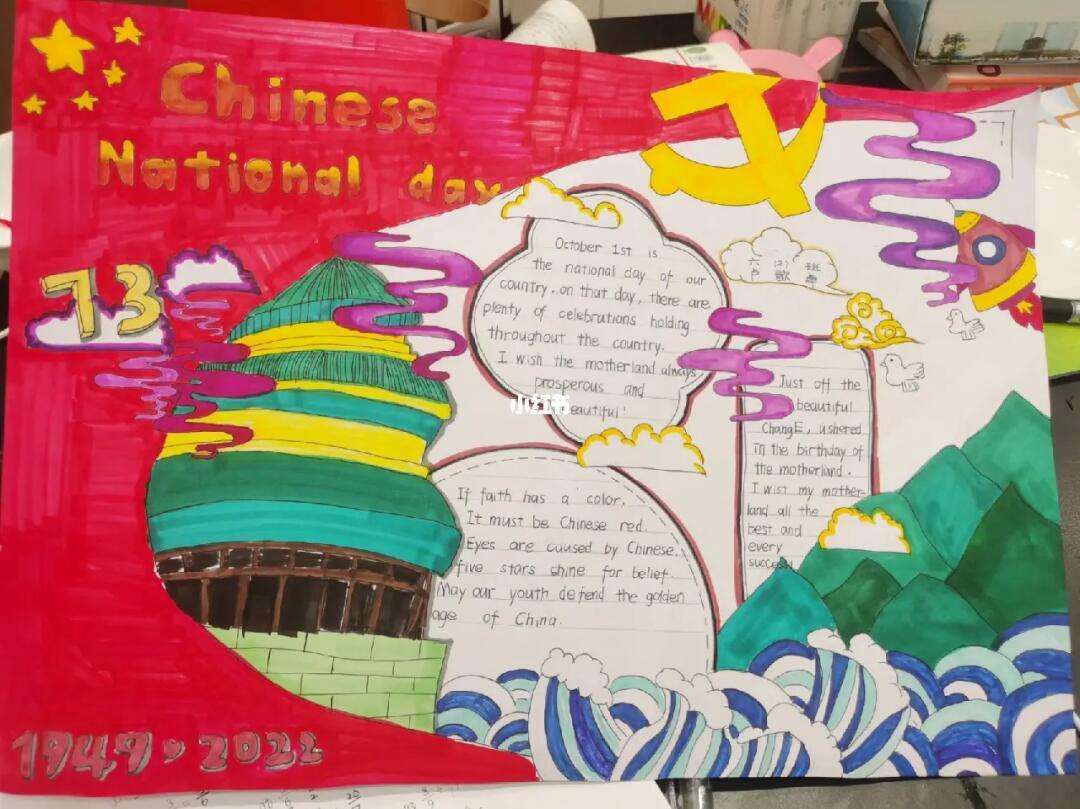 Chinese
National day
73
October 1st is
the national day of our
country, on that day, there are
plenty of celebrutions holding
throughout the country.
I wish the motherland always
prosperous and
eautiful!
小红书
六 (2) 班
卢 歌
Just off the
beautiful
ChangE, ushered
in the birthday of
the motherland.
I wist my mother-
land all the
best and
every
success
If faith has a color,
It must be Chinese red.
Eyes are caused by Chinese,
five stars shine for belief.
May our youth defend the golden
age of China.
1949, 2022